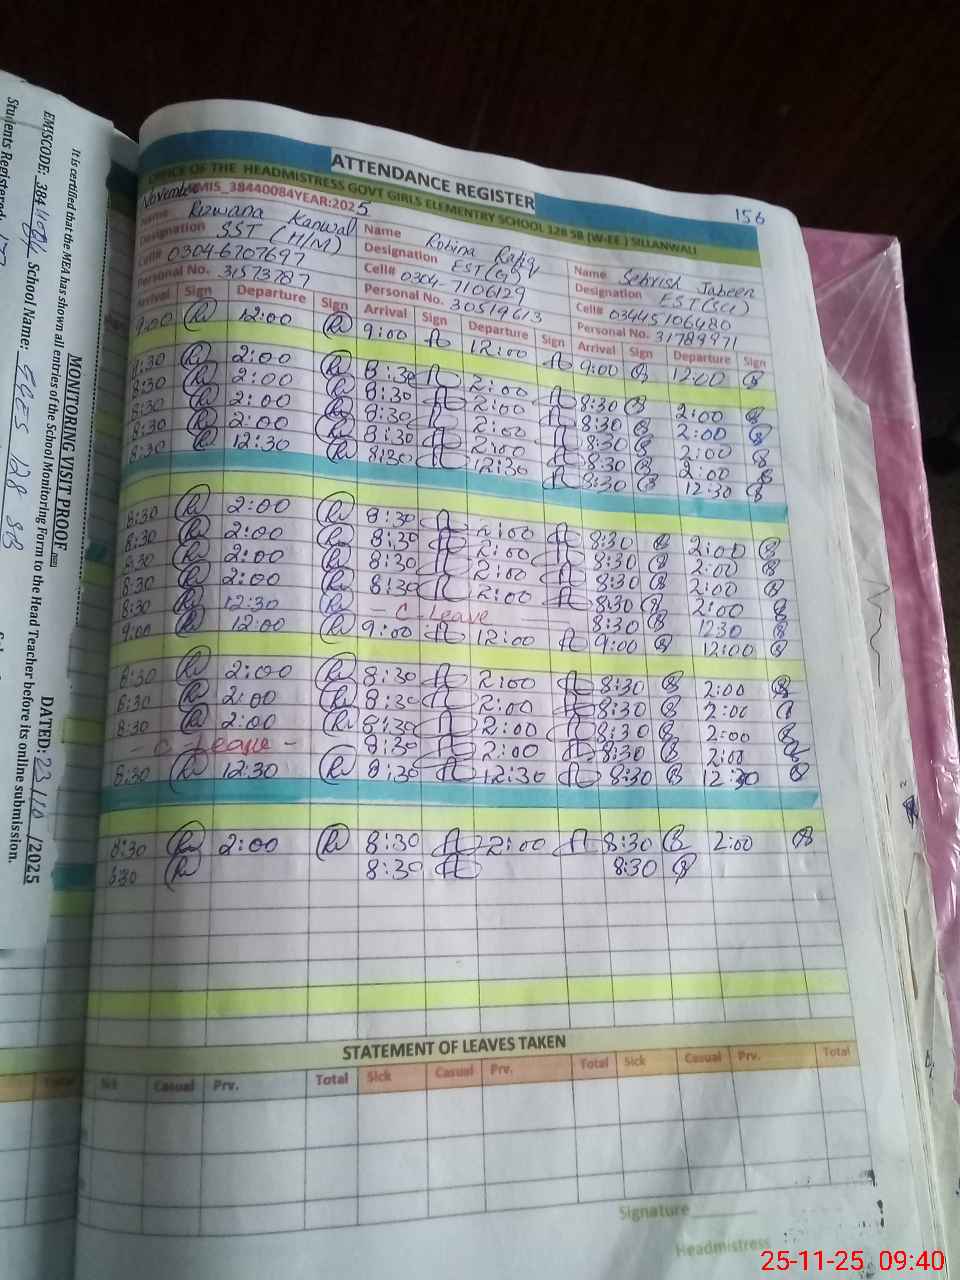 It is certified that the MEA has shown all entries of the School Monitoring Form to the Head Teacher before its online submission.
MONITORING VISIT PROOF
DATED: 23/10/2025
EMISCODE: School Name: GGES 128 SB
Students Registered:
156
ATTENDANCE REGISTER
OFFICE OF THE HEADMISTRESS GOVT GIRLS ELEMENTRY SCHOOL 128 SB (W-EE) SILLANWALI
November EMIS_38440084YEAR:2025
Name Rizwana Kanwal Name Robina Rafiq Name Sehrish Jabeen
Designation SST (H/M) Designation EST Designation EST(Sci)
Cell# 0304-6707697 Cell# 0304-7106129 Cell# 03445106480
Personal No. 31573787 Personal No. 30519613 Personal No. 31789971
Arrival Sign Departure Sign Arrival Sign Departure Sign Arrival Sign Departure Sign
9:00 12:00 9:00 12:00 9:00 12:00
8:30 2:00 8:30 2:00 8:30 2:00
8:30 2:00 8:30 2:00 8:30 2:00
8:30 2:00 8:30 2:00 8:30 2:00
8:30 2:00 8:30 2:00 8:30 2:00
8:30 12:30 8:30 12:30 8:30 12:30
8:30 2:00 8:30 2:00 8:30 2:00
8:30 2:00 8:30 2:00 8:30 2:00
8:30 2:00 8:30 2:00 8:30 2:00
8:30 2:00 8:30 2:00 8:30 2:00
8:30 12:30 - C Leave - 8:30 1230
9:00 12:00 9:00 12:00 9:00 12:00
8:30 2:00 8:30 2:00 8:30 2:00
8:30 2:00 8:30 2:00 8:30 2:00
8:30 2:00 8:30 2:00 8:30 2:00
- C Leave - 8:30 2:00 8:30 2:00
8:30 12:30 8:30 12:30 8:30 12:30
8:30 2:00 8:30 2:00 8:30 2:00
830 8:30 8:30
STATEMENT OF LEAVES TAKEN
Casual Prv. Total Sick Casual Prv. Total Sick Casual Prv. Total
Signature
Headmistress
25-11-25 09:40